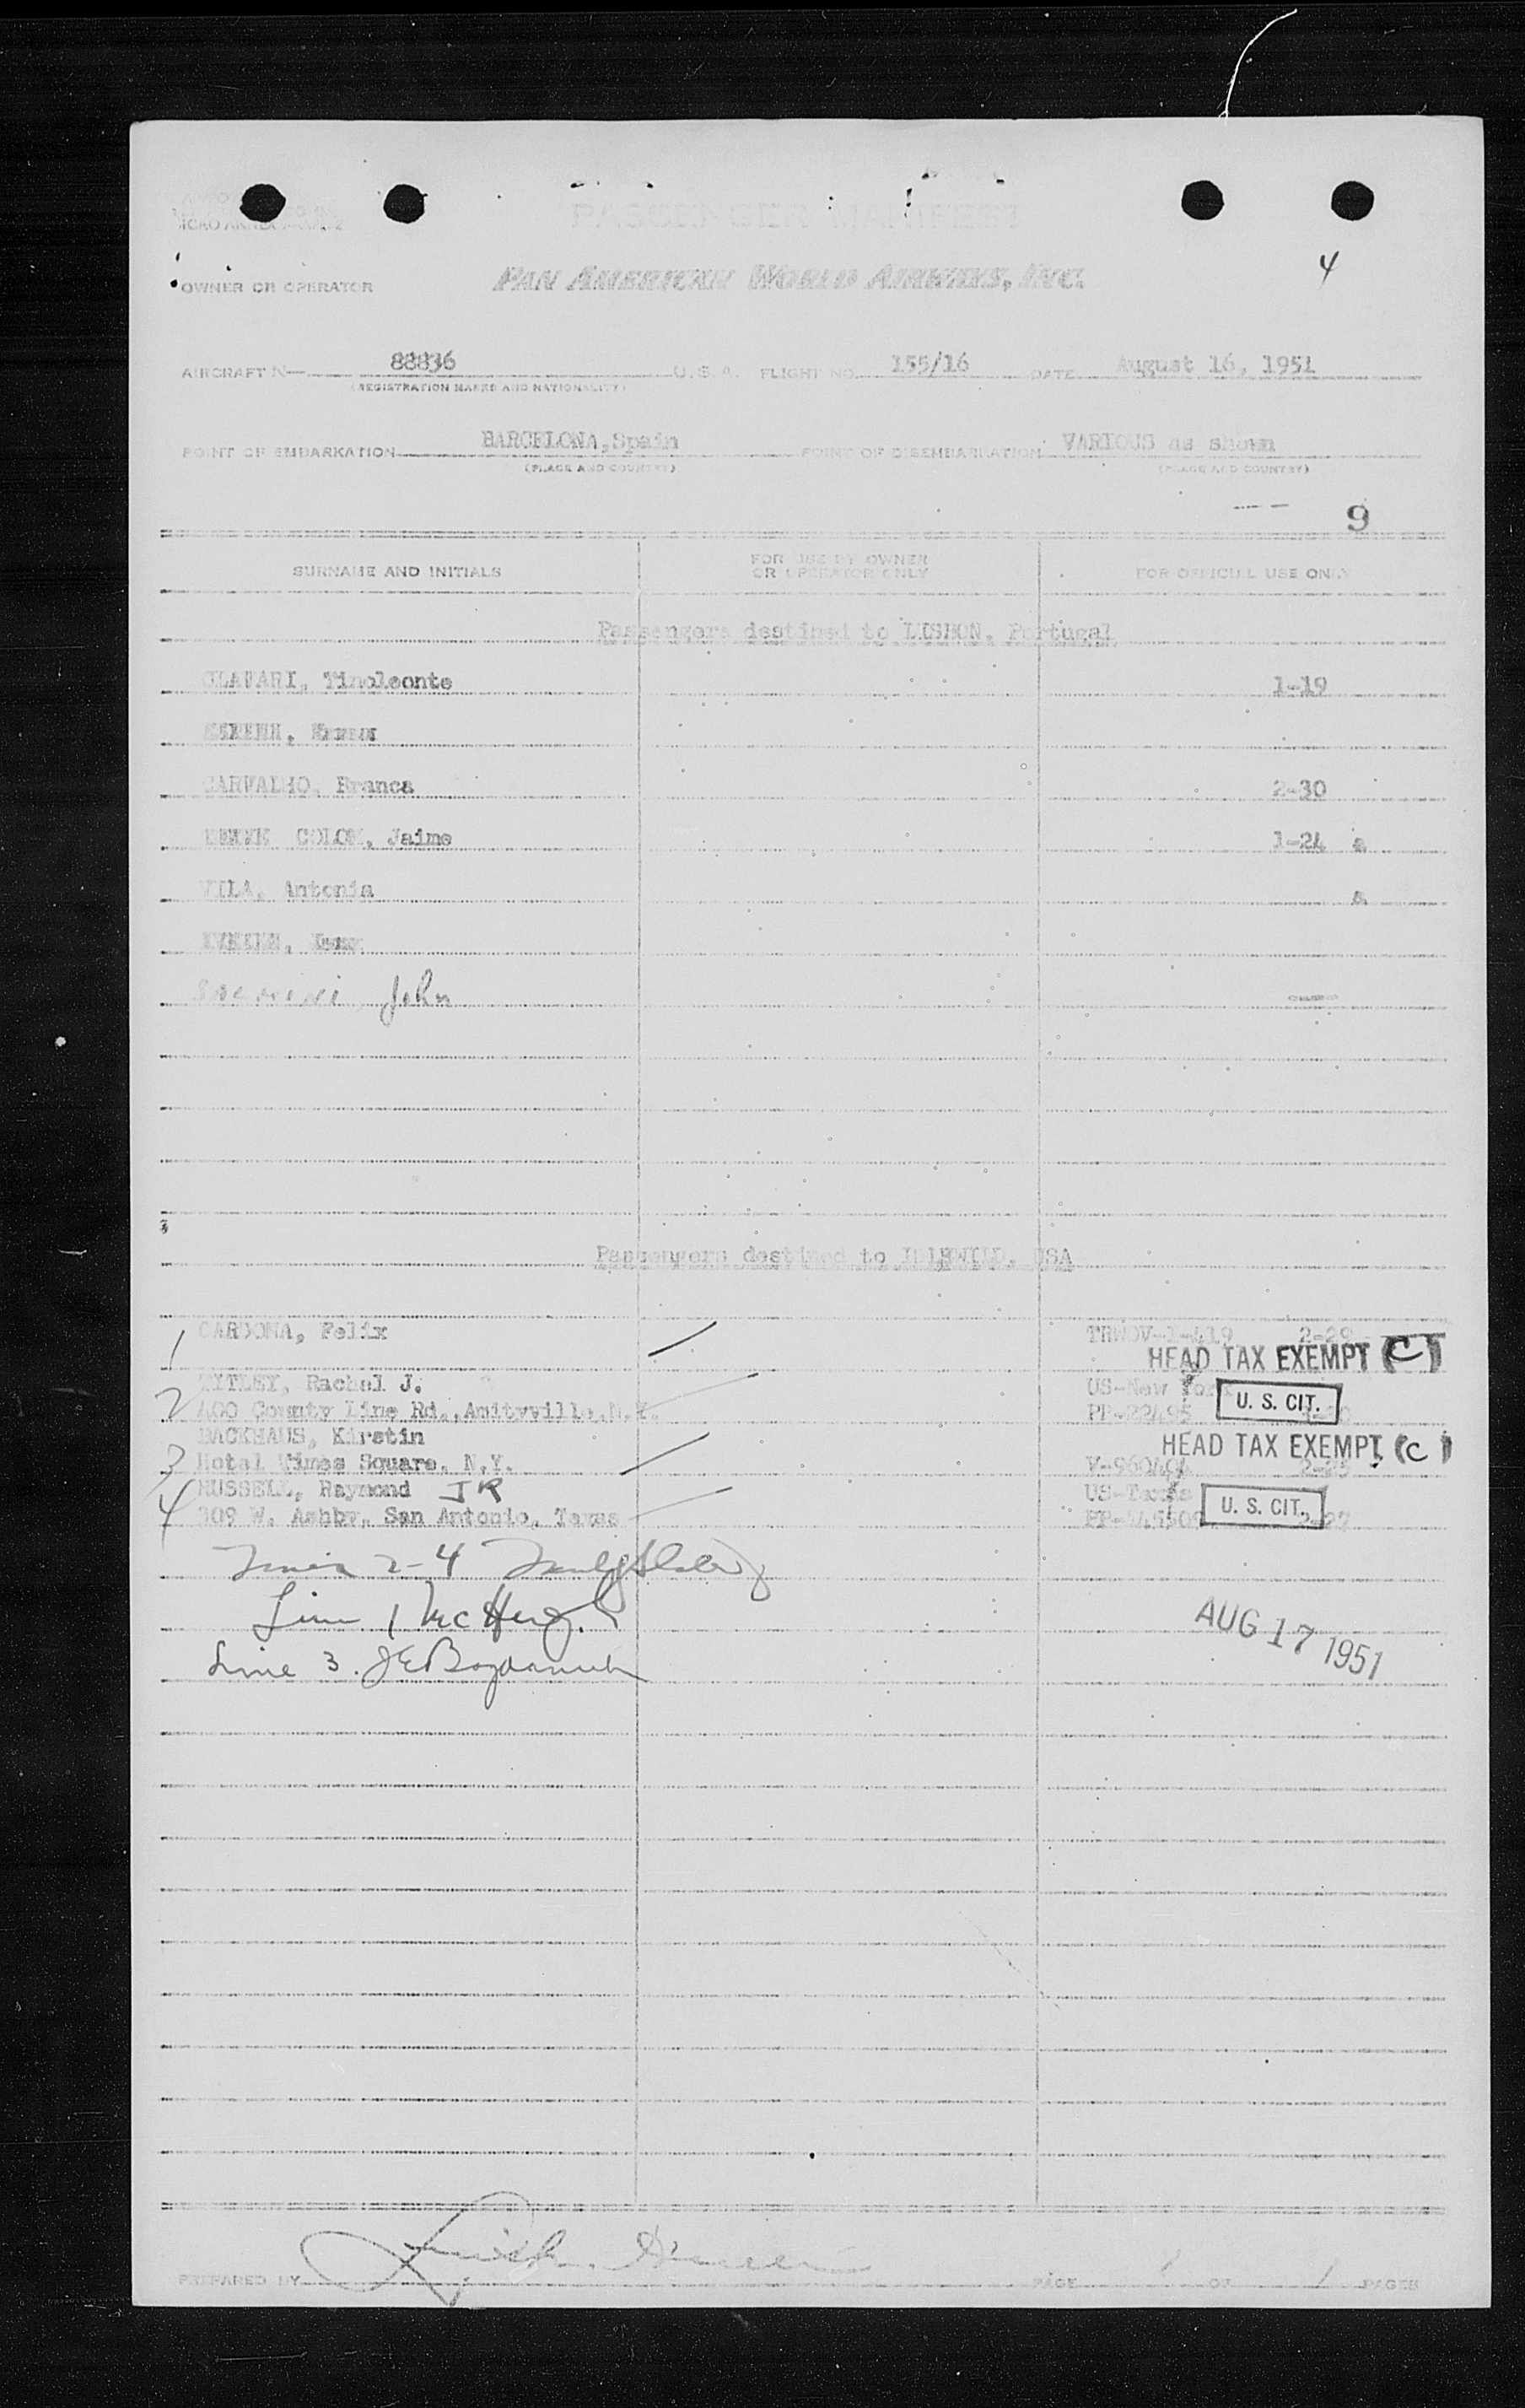 PASSENGER MANIFEST
4
OWNER OR OPERATOR PAN AMERICAN WORLD AIRWAYS, INC.
AIRCRAFT N— 88836 U.S.A. FLIGHT NO. 155/16 DATE August 16, 1951
(REGISTRATION MARKS AND NATIONALITY)
POINT OF EMBARKATION BARCELONA, Spain POINT OF DISEMBARKATION VARIOUS as shown
(PLACE AND COUNTRY) (PLACE AND COUNTRY)
9
SURNAME AND INITIALS FOR USE BY OWNER OR OPERATOR ONLY FOR OFFICIAL USE ONLY
Passengers destined to LISBON, Portugal
Timoleonte 1-19
CARVALHO, Branca 2-30
COLOM, Jaime 1-24 a
VILA, Antonia a
John
Passengers destined to IDLEWILD, USA
1 CARDONA, Felix 2-29
HEAD TAX EXEMPT (C)
2 Rachel J. US-New York
400 County Line Rd., Amityville, N.Y. U. S. CIT.
BACKHAUS, Kirstin HEAD TAX EXEMPT (C)
3 Hotel Times Square, N.Y. 2-25
RUSSELL, Raymond JR US-Texas
4 309 W. Ashby, San Antonio, Texas U. S. CIT. 2-27
2-4
Line 1 McHugh
Line 3. J E
AUG 17 1951
PREPARED BY PAGE 1 OF 1 PAGES